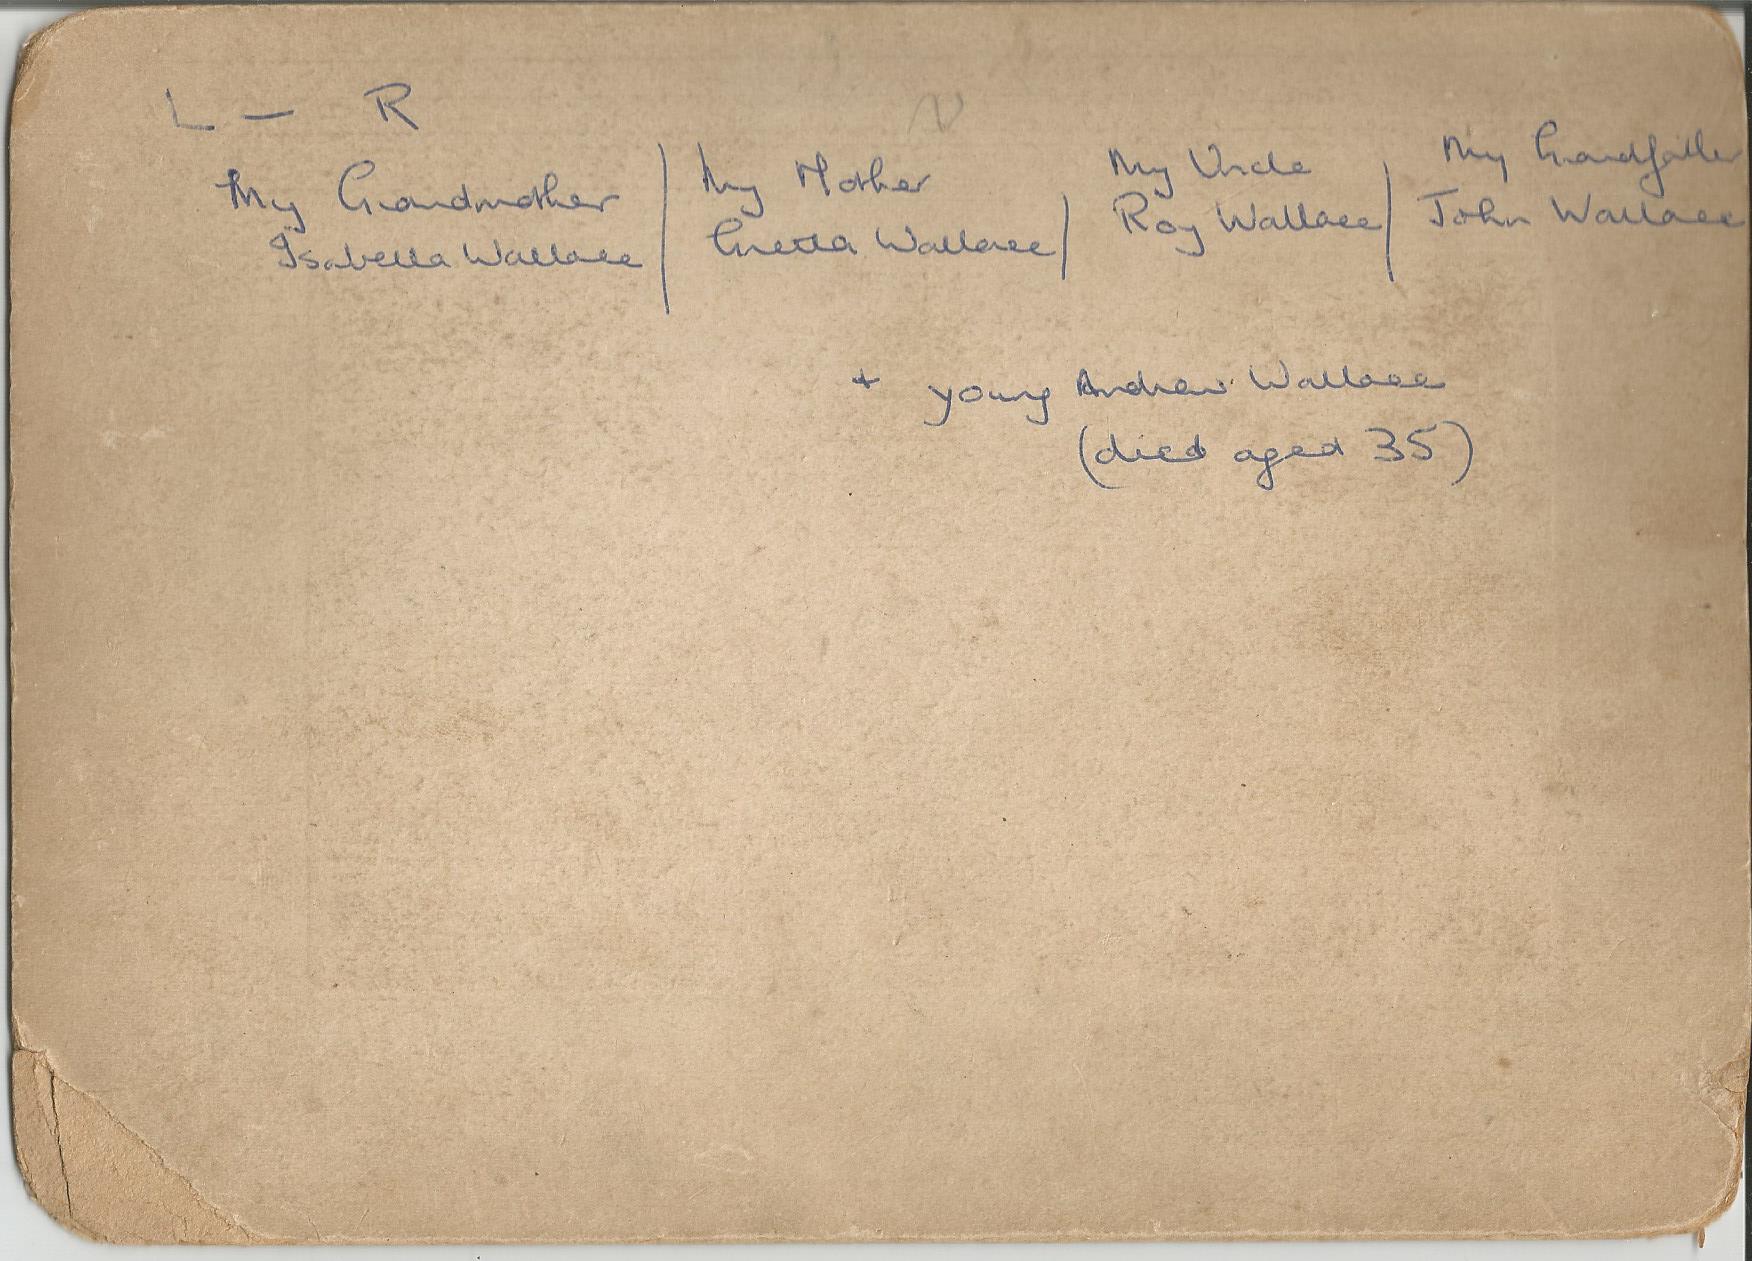 L — R
My Grandmother / My Mother / My Uncle / My Grandfather
Isabella Wallace / Gretta Wallace / Roy Wallace / John Wallace
+ young Andrew Wallace
(died aged 35)